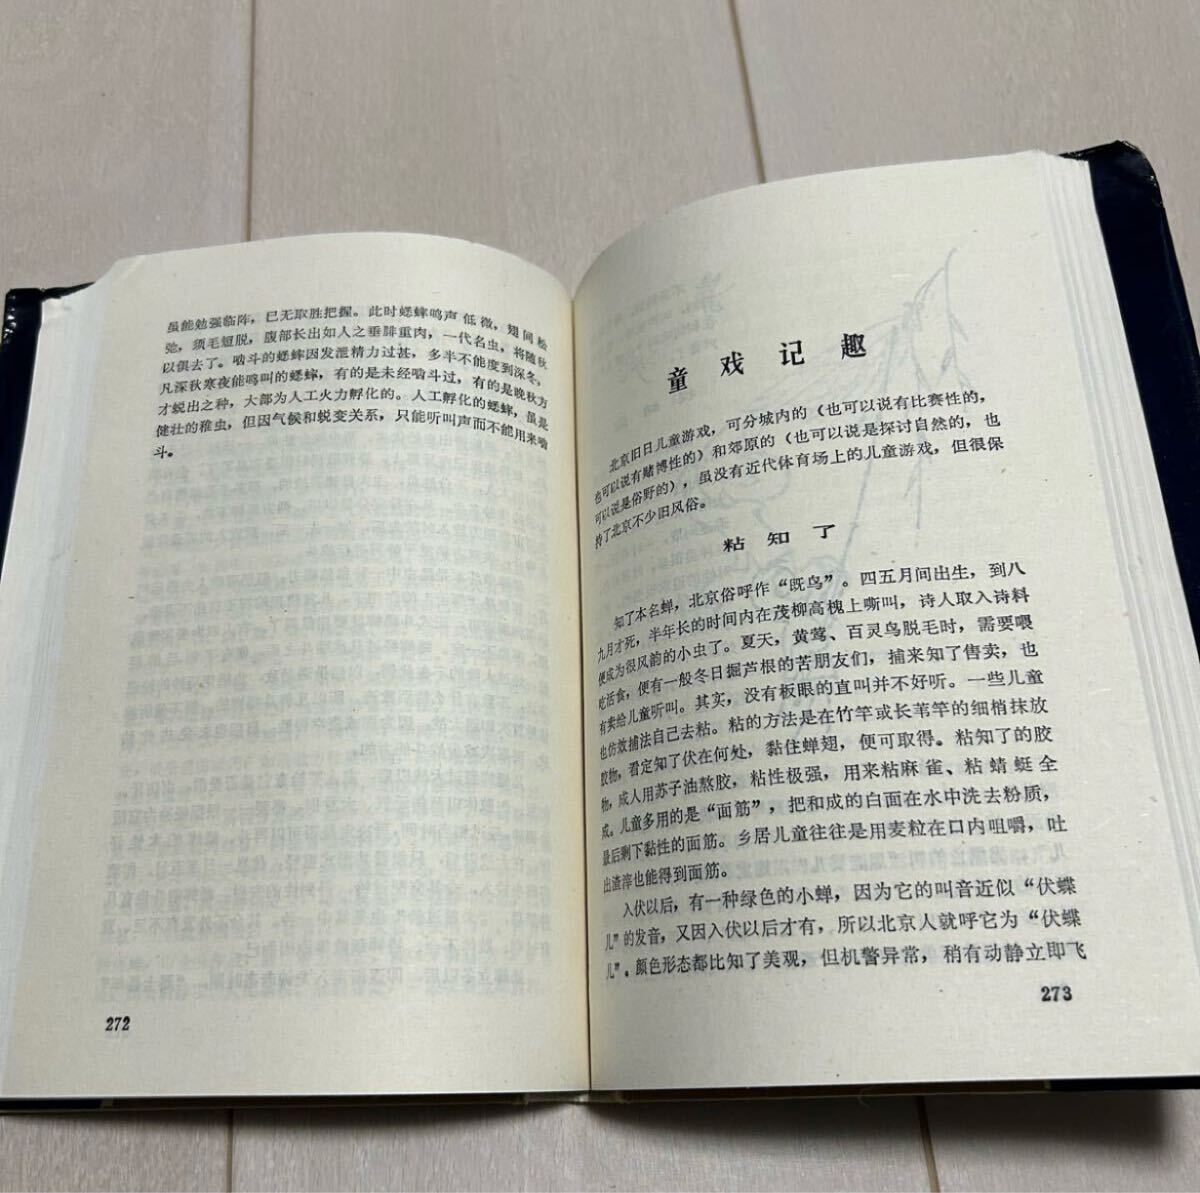 虽能勉强临阵，已无取胜把握。此时蟋蟀鸣声低微，翅间松
弛，须毛短脱，腹部长出如人之垂腓重肉，一代名虫，将随秋
以俱去了。啮斗的蟋蟀因发泄精力过甚，多半不能度到深冬，
凡深秋寒夜能鸣叫的蟋蟀，有的是未经啮斗过，有的是晚秋方
才蜕出之种，大部为人工火力孵化的。人工孵化的蟋蟀，虽是
健壮的稚虫，但因气候和蜕变关系，只能听叫声而不能用来啮
斗。
272
童戏记趣
北京旧日儿童游戏，可分城内的（也可以说有比赛性的，
也可以说有赌博性的）和郊原的（也可以说是探讨自然的，也
可以说是俗野的），虽没有近代体育场上的儿童游戏，但很保
持了北京不少旧风俗。
粘知了
知了本名蝉，北京俗呼作“既鸟”。四五月间出生，到八
九月才死，半年长的时间内在茂柳高槐上嘶叫，诗人取入诗料
便成为很风韵的小虫了。夏天，黄莺、百灵鸟脱毛时，需要喂
吃活食，便有一般冬日掘芦根的苦朋友们，捕来知了售卖，也
有卖给儿童听叫。其实，没有板眼的直叫并不好听。一些儿童
也仿效捕法自己去粘。粘的方法是在竹竿或长苇竿的细梢抹放
胶物，看定知了伏在何处，黏住蝉翅，便可取得。粘知了的胶
物，成人用苏子油熬胶，粘性极强，用来粘麻雀、粘蜻蜓全
成。儿童多用的是“面筋”，把和成的白面在水中洗去粉质，
最后剩下黏性的面筋。乡居儿童往往是用麦粒在口内咀嚼，吐
出渣滓也能得到面筋。
入伏以后，有一种绿色的小蝉，因为它的叫音近似“伏蝶
儿”的发音，又因入伏以后才有，所以北京人就呼它为“伏蝶
儿”。颜色形态都比知了美观，但机警异常，稍有动静立即飞
273